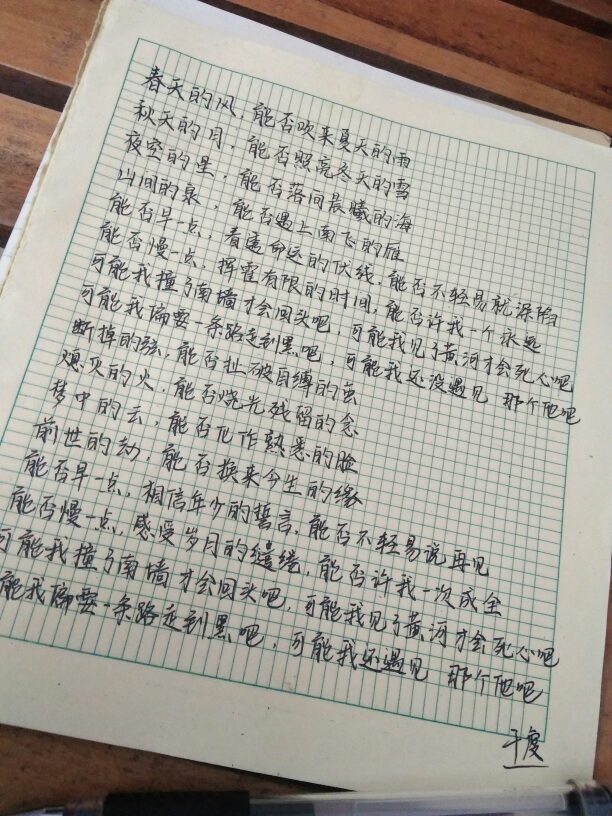 春天的风，能否吹来夏天的雨
秋天的月，能否照亮冬天的雪
夜空的星，能否落向晨曦的海
山间的泉，能否遇上南飞的雁
能否早一点，看透命运的伏线，能否不轻易就深陷
能否慢一点，挥霍有限的时间，能否许我一个永远
可能我撞了南墙才会回头吧，可能我见了黄河才会死心吧
可能我偏要一条路走到黑吧，可能我还没遇见 那个他吧
断掉的弦，能否扯破自缚的茧
熄灭的火，能否烧光残留的念
梦中的云，能否化作熟悉的脸
前世的劫，能否换来今生的缘
能否早一点，相信年少的誓言，能否不轻易说再见
能否慢一点，感受岁月的缱绻，能否许我一次成全
可能我撞了南墙才会回头吧，可能我见了黄河才会死心吧
能我偏要一条路走到黑吧，可能我还遇见 那个他吧
千度